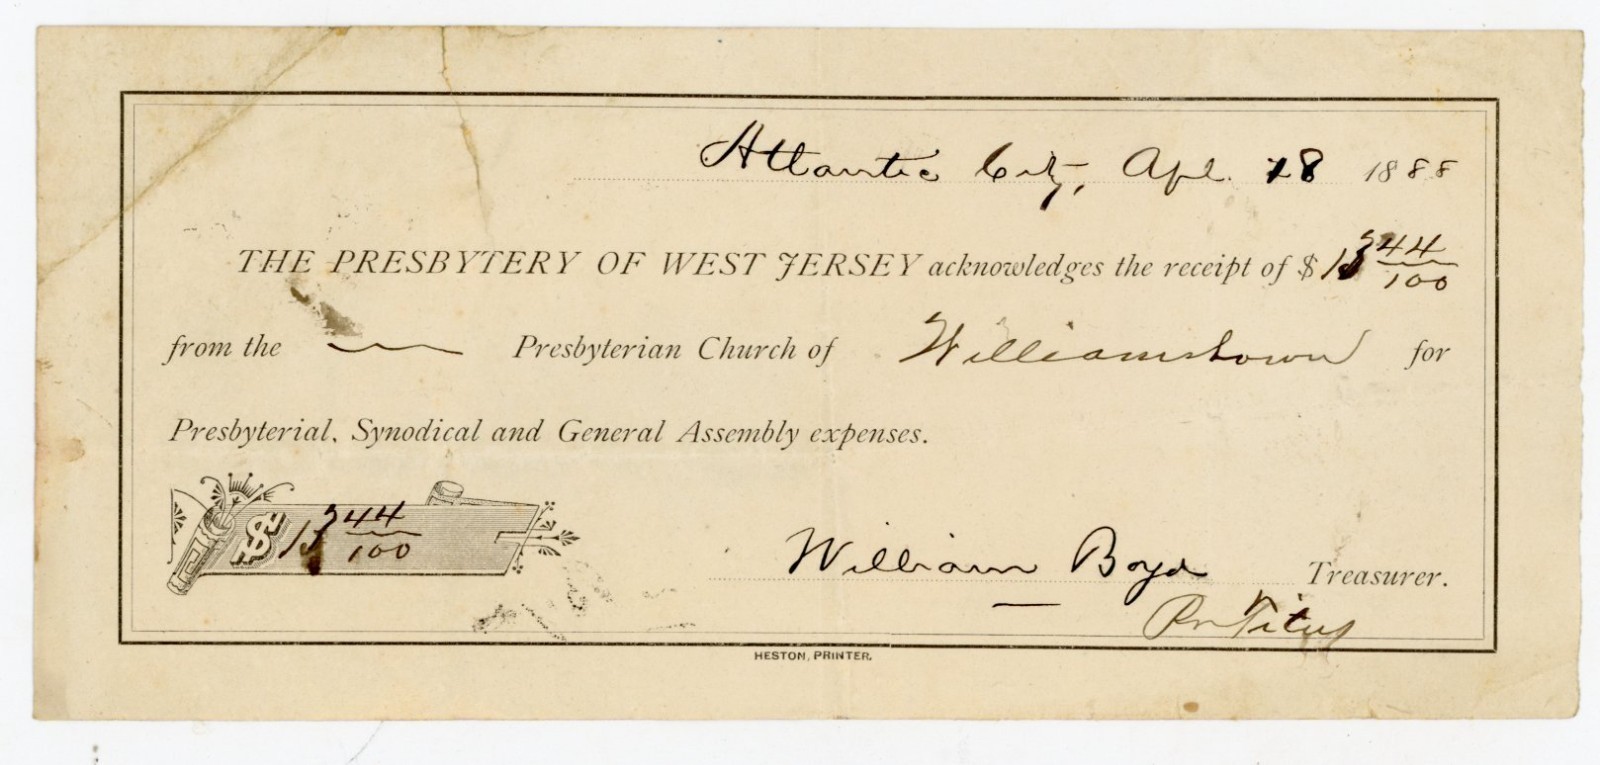 Atlantic City, Apl. 18 1888
THE PRESBYTERY OF WEST JERSEY acknowledges the receipt of $ 13 44/100
from the — Presbyterian Church of Williamstown for
Presbyterial, Synodical and General Assembly expenses.
$ 13 44/100
William Boyd Treasurer.
Pr Titus
HESTON, PRINTER.